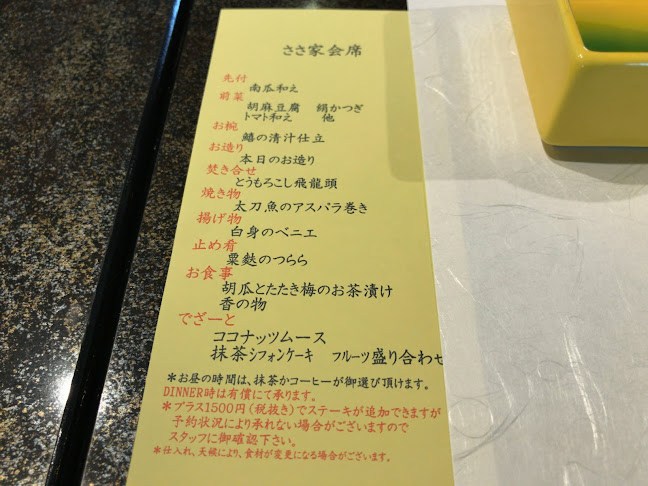 ささ家会席
先付
南瓜和え
前菜
胡麻豆腐 絹かつぎ
トマト和え 他
お椀
鱚の清汁仕立
お造り
本日のお造り
焚き合せ
とうもろこし飛龍頭
焼き物
太刀魚のアスパラ巻き
揚げ物
白身のベニエ
止め肴
粟麩のつらら
お食事
胡瓜とたたき梅のお茶漬け
香の物
でざーと
ココナッツムース
抹茶シフォンケーキ フルーツ盛り合わせ
*お昼の時間は、抹茶かコーヒーが御選び頂けます。
DINNER時は有償にて承ります。
*プラス1500円(税抜き)でステーキが追加できますが
予約状況により承れない場合がございますので
スタッフに御確認下さい。
*仕入れ、天候により、食材が変更になる場合がございます。